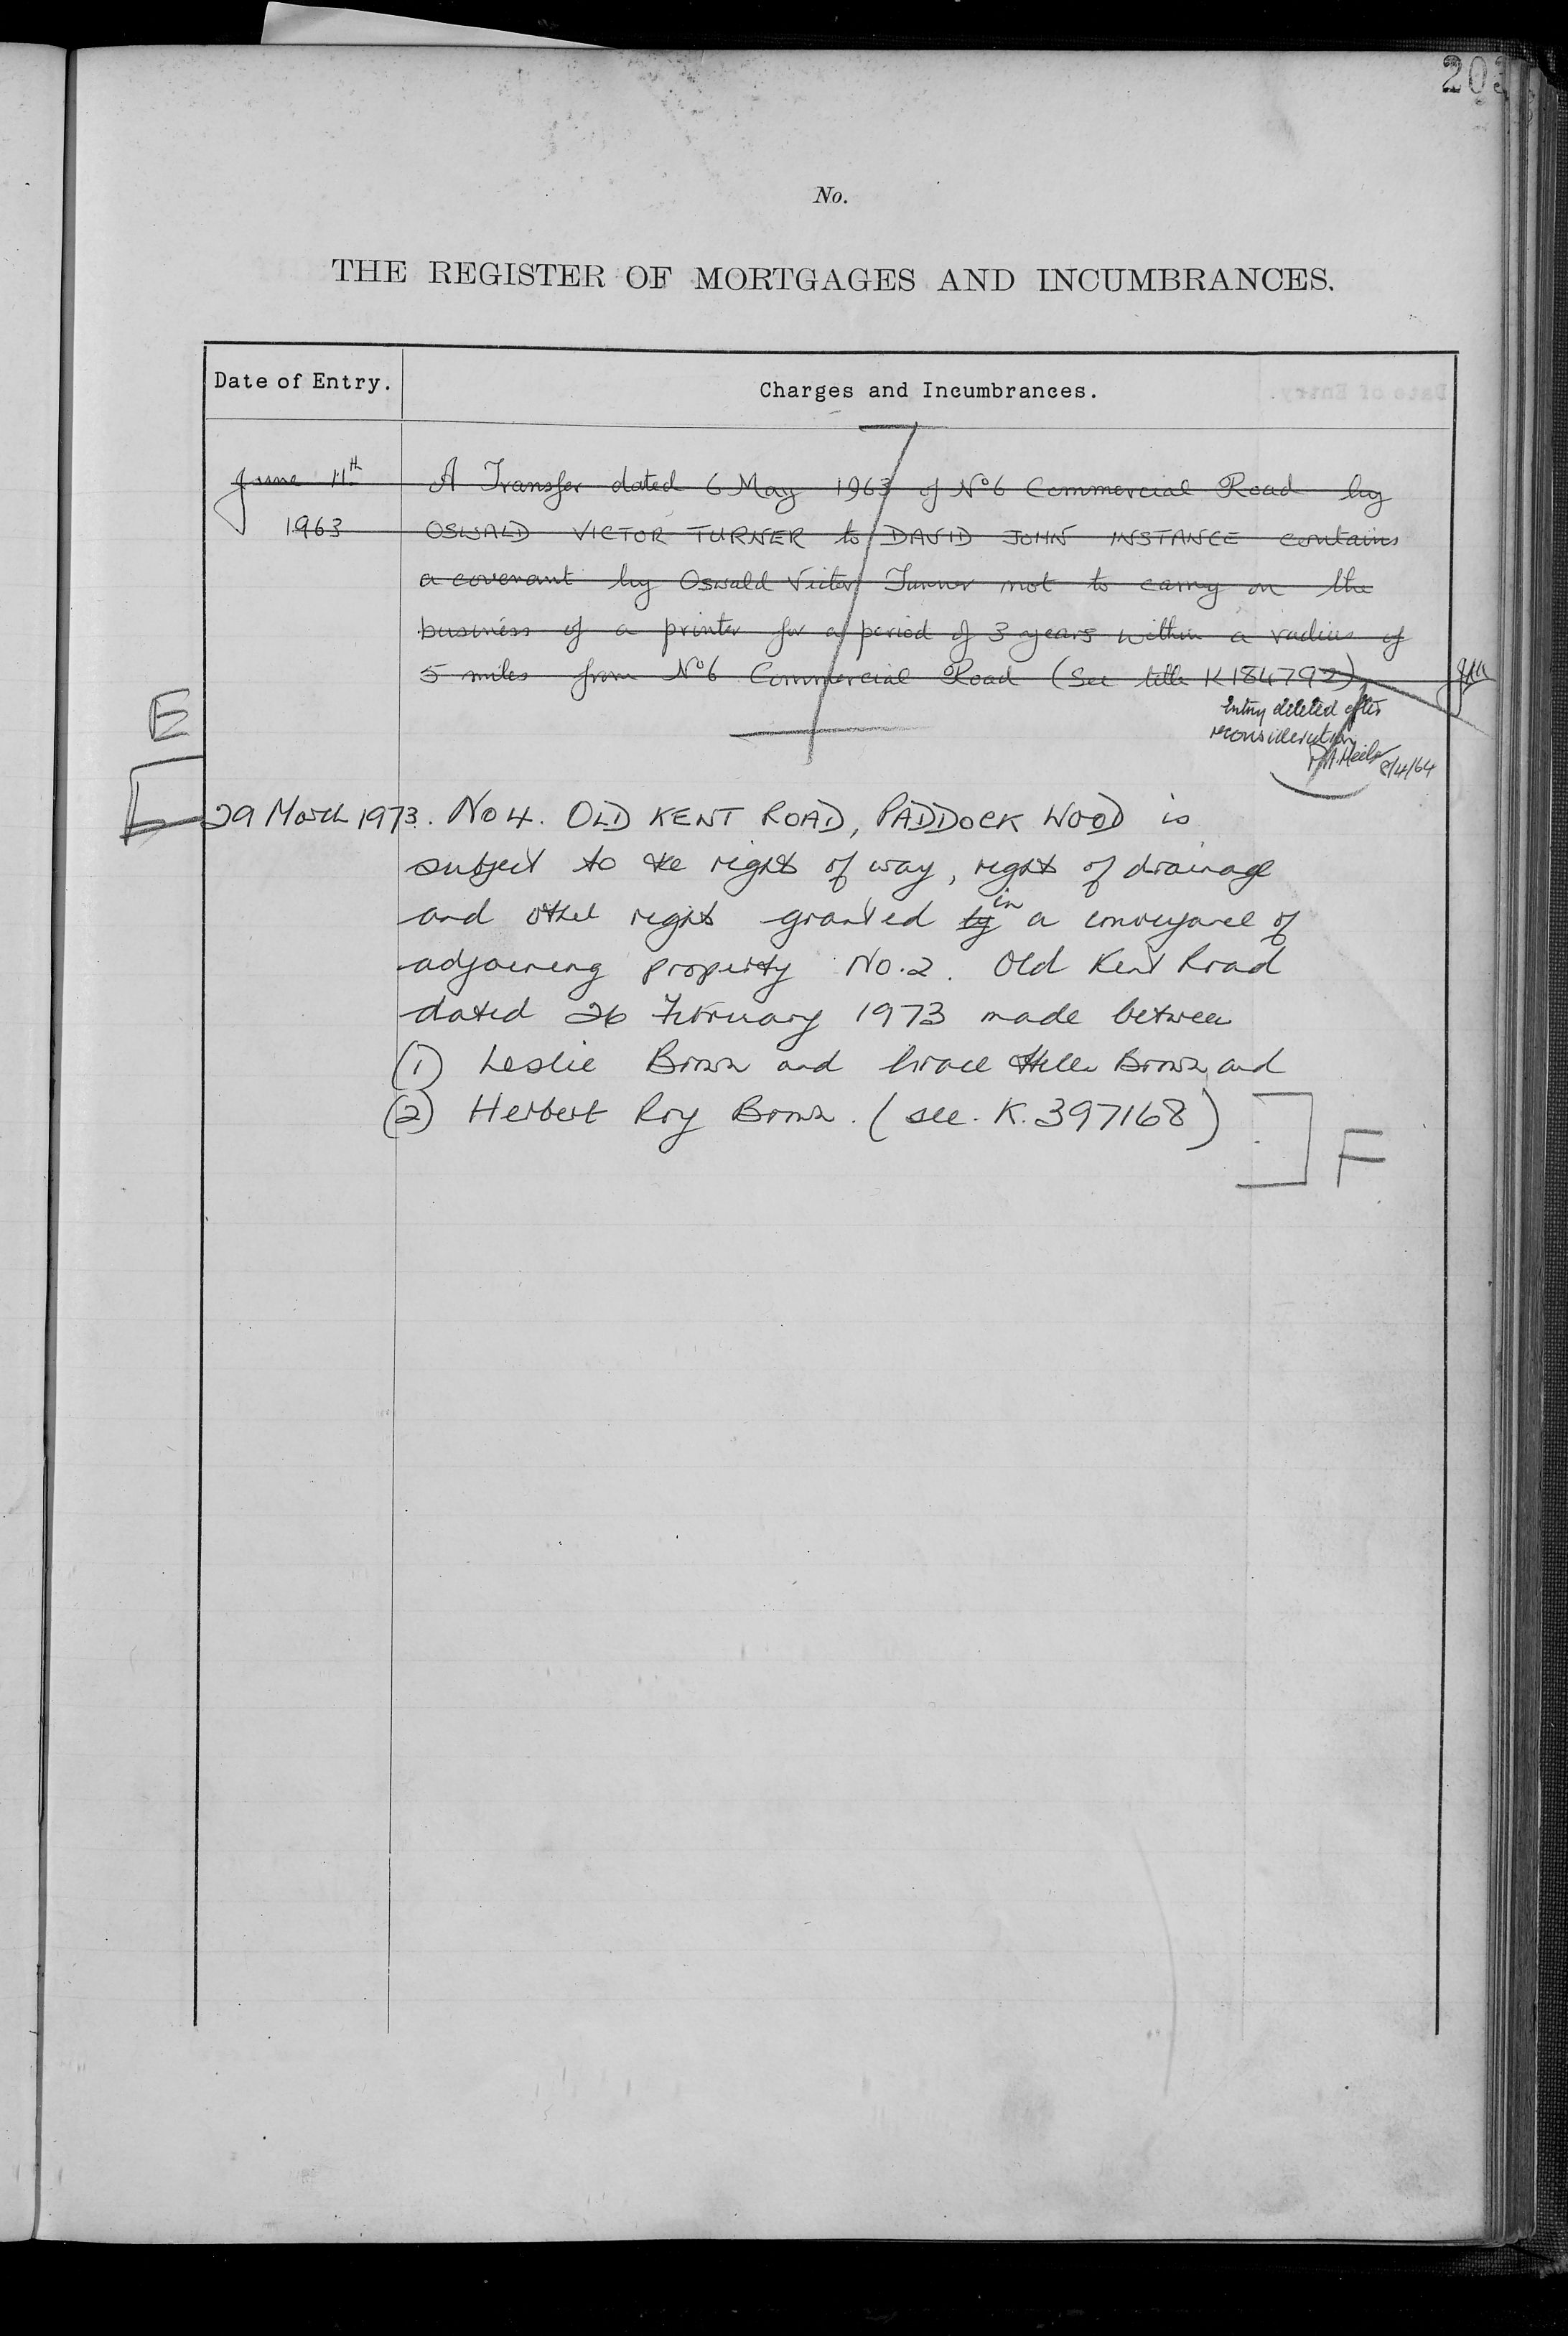 203
No.
THE REGISTER OF MORTGAGES AND INCUMBRANCES.
Date of Entry.
Charges and Incumbrances.
June 11th
1963
A Transfer dated 6 May 1963 of No6 Commercial Road by
OSWALD VICTOR TURNER to DAVID JOHN INSTANCE contains
a covenant by Oswald Victor Turner not to carry on the
business of a printer for a period of 3 years within a radius of
5 miles from No6 Commercial Road (See title K184792)
Entry deleted after
reconsideration
8/4/64
E
29 March 1973. No 4. OLD KENT ROAD, PADDOCK WOOD is
subject to the rights of way, rights of drainage
and other rights granted by in a conveyance of
adjoining property No.2. Old Kent Road
dated 26 February 1973 made between
(1) Leslie Brown and Grace Hellen Brown and
(2) Herbert Roy Brown. (see. K.397168)
F